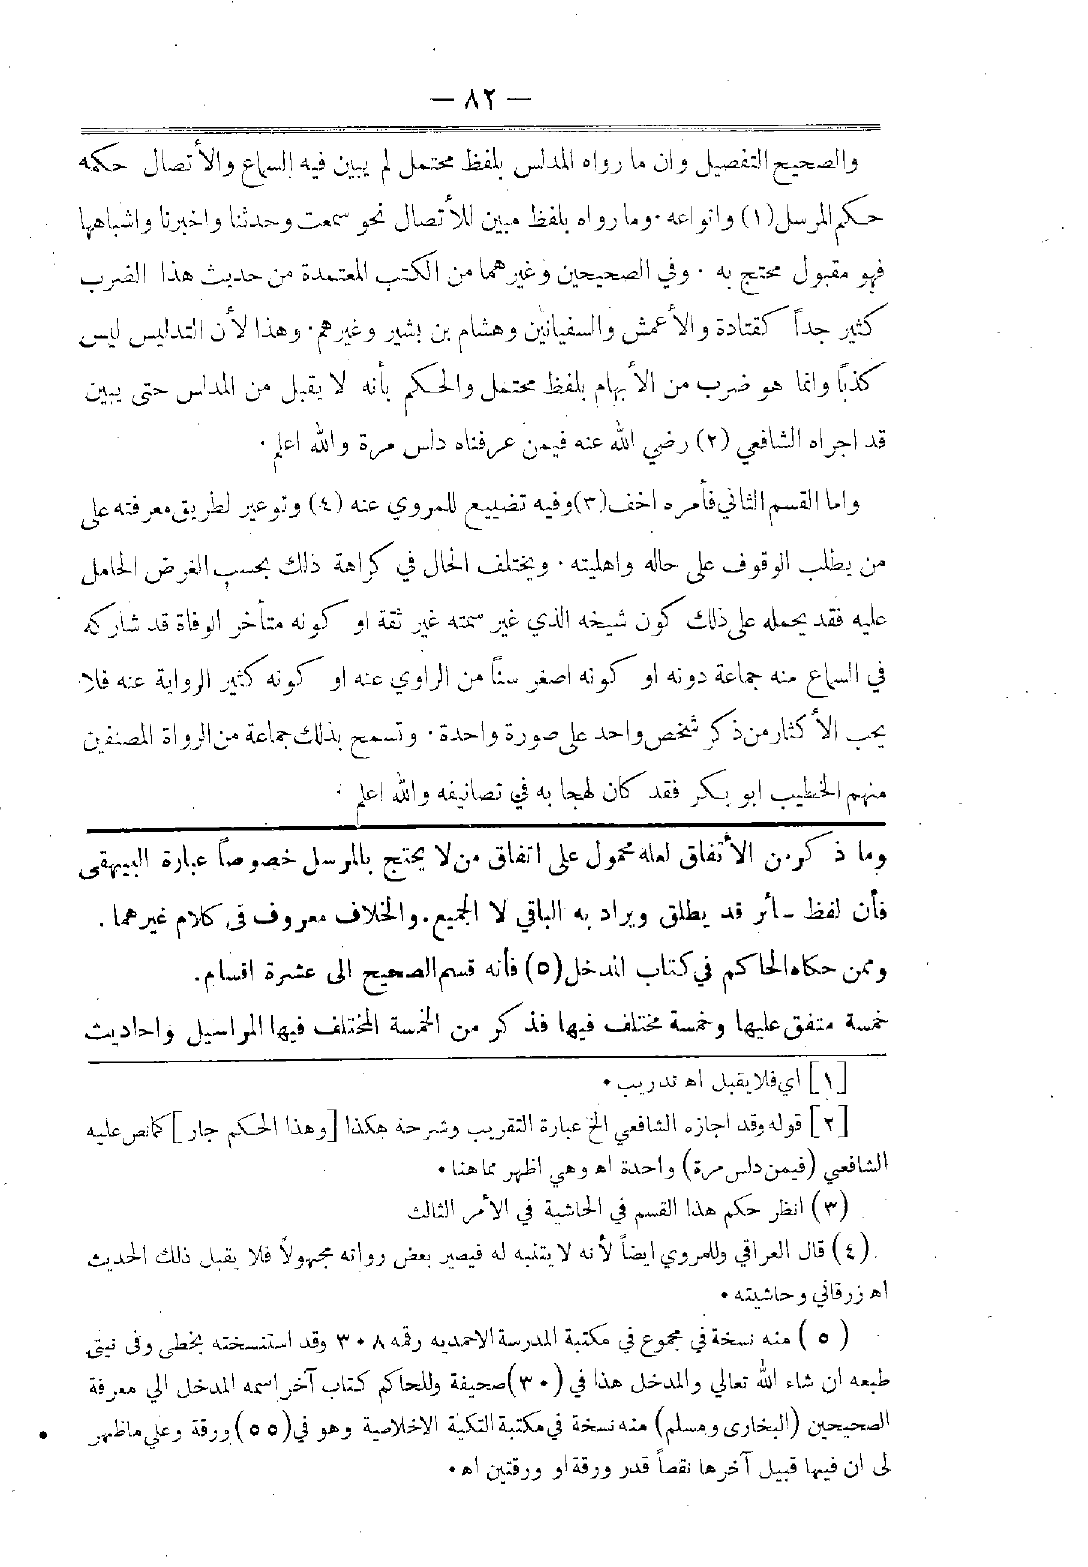 — ٨٢ —
والصحيح التفصيل وان ما رواه المدلس بلفظ محتمل لم يبين فيه السماع والأتصال حكمه
حكم المرسل (١) وانواعه ٠ وما رواه بلفظ مبين للأتصال نحو سمعت وحدثنا واخبرنا واشباهها
فهو مقبول محتج به ٠ وفي الصحيحين وغيرهما من الكتب المعتمدة من حديث هذا الضرب
كثير جداً كقتادة والأعمش والسفيانين وهشام بن بشير وغيرهم ٠ وهذا لأن التدليس ليس
كذبًا وانما هو ضرب من الأبهام بلفظ محتمل والحكم بأنه لا يقبل من المدلس حتى يبين
قد اجراه الشافعي (٢) رضي الله عنه فيمن عرفناه دلس مرة والله اعلم ٠
واما القسم الثاني فأمره اخف (٣) وفيه تضييع للمروي عنه (٤) وتوعير لطريق معرفته على
من يطلب الوقوف على حاله واهليته ٠ ويختلف الحال في كراهة ذلك بحسب الغرض الحامل
عليه فقد يحمله على ذلك كون شيخه الذي غير سمته غير ثقة او كونه متأخر الوفاة قد شاركه
في السماع منه جماعة دونه او كونه اصغر سنًا من الراوي عنه او كونه كثير الرواية عنه فلا
يحب الأكثار من ذكر شخص واحد على صورة واحدة ٠ وتسمح بذلك جماعة من الرواة المصنفين
منهم الخطيب ابو بكر فقد كان لهجا به في تصانيفه والله اعلم ٠
وما ذكر من الأتفاق لعله محمول على اتفاق من لا يحتج بالمرسل خصوصاً عبارة البيهقى
فأن لفظ سائر قد يطلق ويراد به الباقي لا الجميع. والخلاف معروف فى كلام غيرهما.
وممن حكاه الحاكم في كتاب المدخل (٥) فأنه قسم الصحيح الى عشرة اقسام.
خمسة متفق عليها وخمسة مختلف فيها فذكر من الخمسة المختلف فيها المراسيل واحاديث
[١] اي فلا يقبل اه تدريب ٠
[٢] قوله وقد اجازه الشافعي الخ عبارة التقريب وشرحة هكذا [وهذا الحكم جار] كما نص عليه
الشافعي (فيمن دلس مرة) واحدة اه وهي اظهر مما هنا ٠
(٣) انظر حكم هذا القسم في الحاشية في الأمر الثالث
(٤) قال العراقي وللمروي ايضاً لأنه لا يتنبه له فيصير بعض رواته مجهولاً فلا يقبل ذلك الحديث
اه زرقاني وحاشيته ٠
(٥) منه نسخة في مجموع في مكتبة المدرسة الاحمديه رقمه ٣٠٨ وقد استنسخته بخطى وفى نيتى
طبعه ان شاء الله تعالي والمدخل هذا في (٣٠) صحيفة وللحاكم كتاب آخر اسمه المدخل الي معرفة
الصحيحين (البخارى ومسلم) منه نسخة في مكتبة التكية الاخلاصية وهو في (٥٥) ورقة وعلي ما ظهر
لى ان فيها قبيل آخرها نقصاً قدر ورقة او ورقتين اه ٠